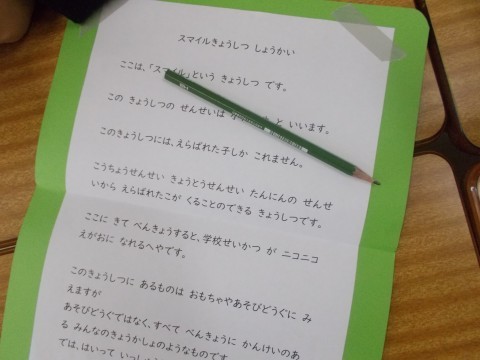 スマイルきょうしつ しょうかい
ここは、「スマイル」という きょうしつ です。
この きょうしつの せんせいは と いいます。
このきょうしつには、えらばれた子しか これません。
こうちょうせんせい きょうとうせんせい たんにんの せんせ
いから えらばれたこが くることのできる きょうしつです。
ここに きて べんきょうすると、学校せいかつ が ニコニコ
えがおに なれるへやです。
このきょうしつに あるものは おもちゃやあそびどうぐに み
えますが
あそびどうぐではなく、すべて べんきょうに かんけいのあ
る みんなのきょうかしょのようなものです。
では、はいって